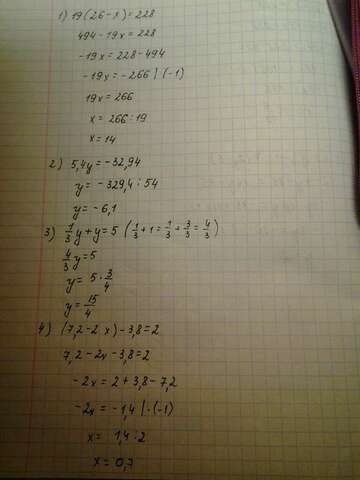 1) 19(26-x)=228
494-19x=228
-19x=228-494
-19x=-266|(-1)
19x=266
x=266:19
x=14
2) 5,4y=-32,94
y=-329,4:54
y=-6,1
3) 1/3y+y=5 (1/3+1=1/3+3/3=4/3)
4/3y=5
y=5·3/4
y=15/4
4) (7,2-2x)-3,8=2
7,2-2x-3,8=2
-2x=2+3,8-7,2
-2x=-1,4|·(-1)
x=1,4:2
x=0,7